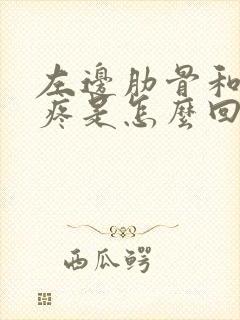 左邊肋骨和
疼是怎麼回
西瓜鳄